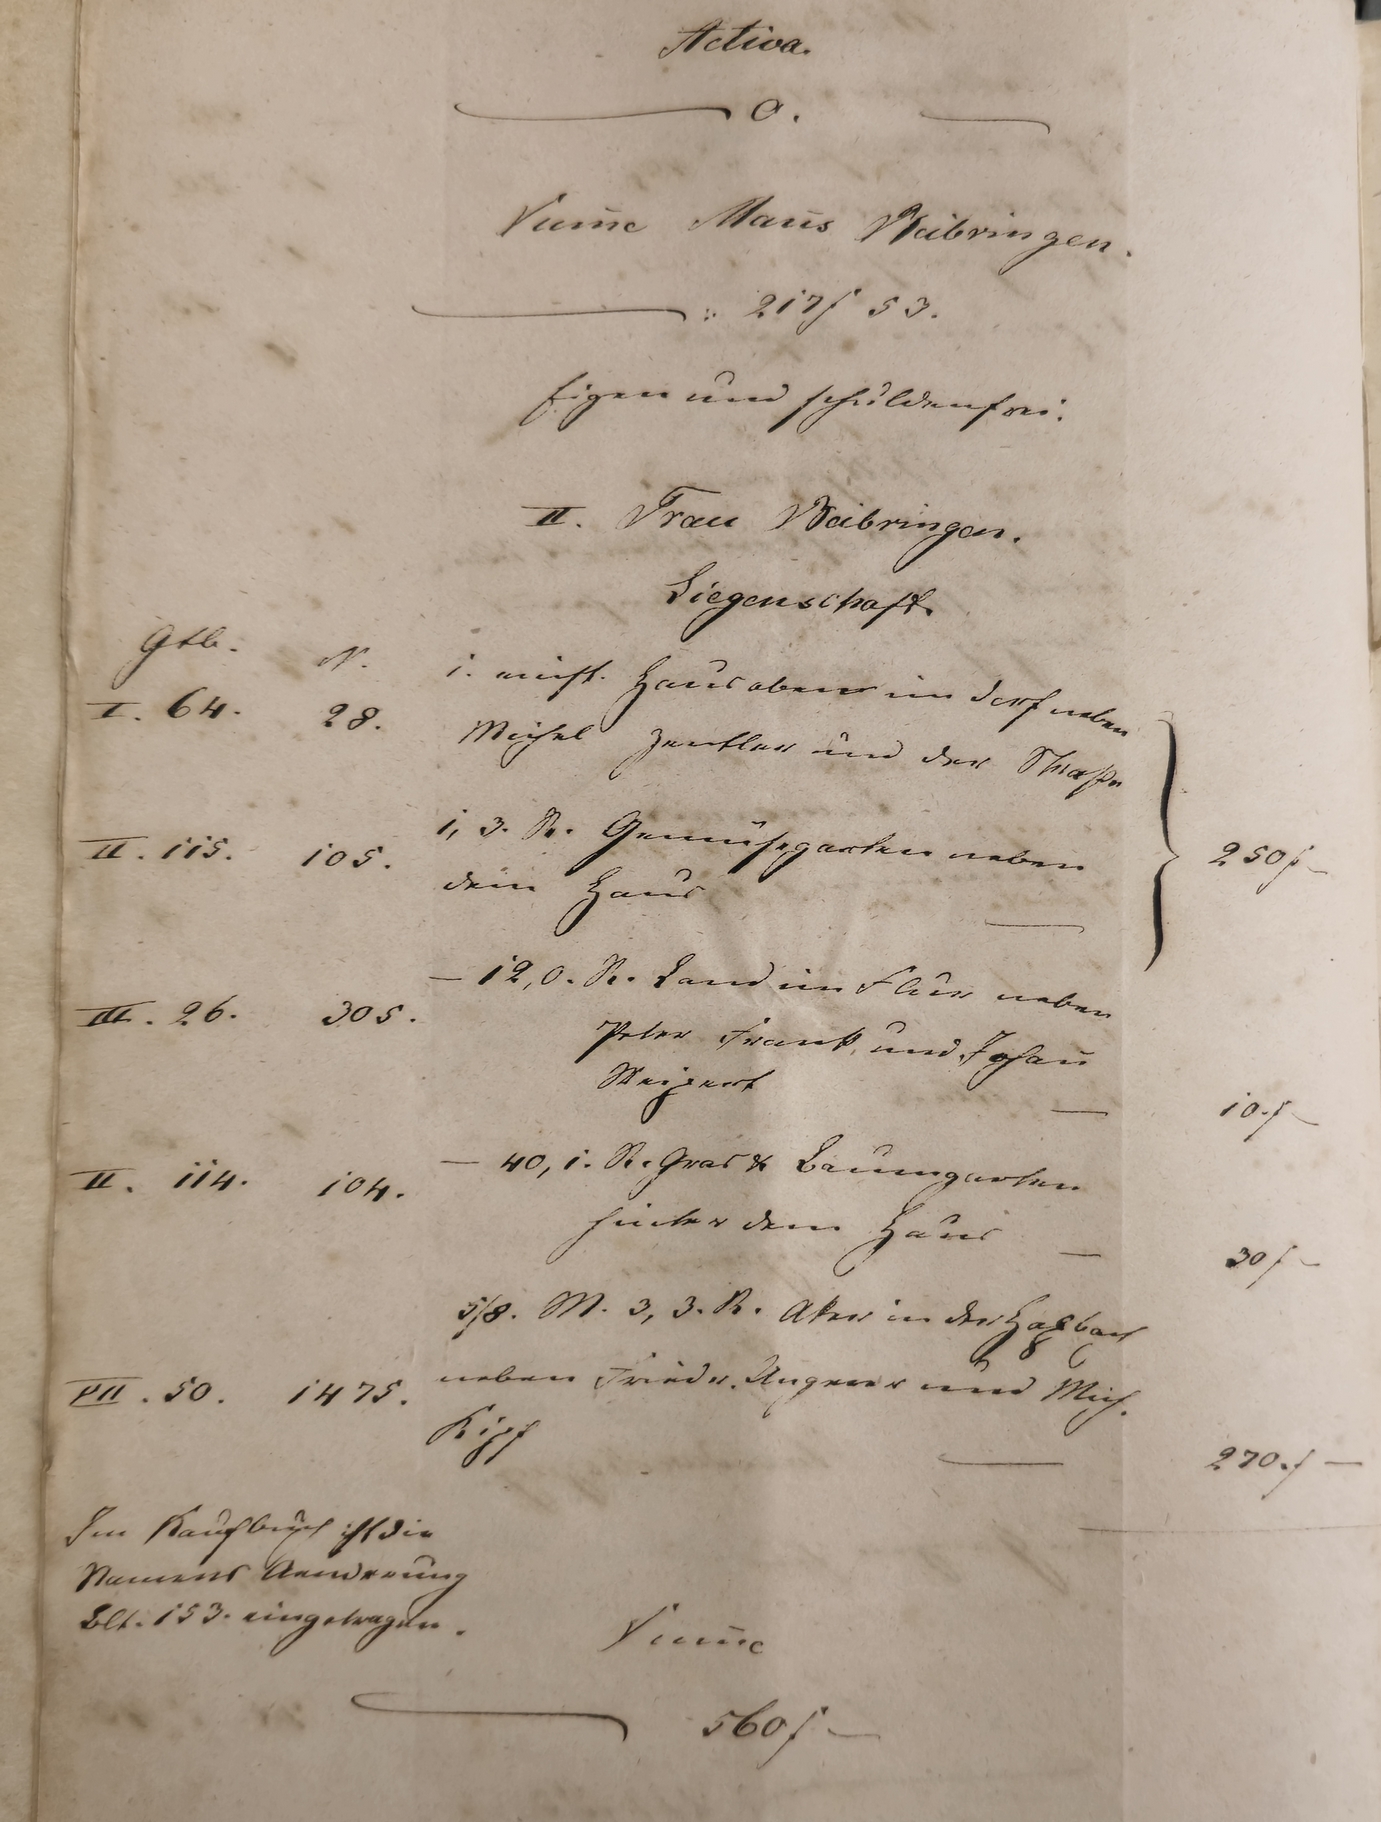 Activa.
0.
Summe Manns Beibringen.
: 217 f 53.
Eigen und schuldenfrei.
II. Frau Beibringen.
Liegenschaft.
Gtb. N.
I. 64. 28. 1. einst. Haus oben im Dorf neben
Michel Zentler und der Straße
II. 115. 105. 1, 3. R. Gemüsegarten neben
dem Haus 250 f –
III. 26. 305. – 12,0. R. Land im Flur neben
Peter Frank und Johann
10. f –
II. 114. 104. – 40, 1. R. Gras & Baumgarten
hinter dem Haus – 30 f –
5/8. M. 3, 3. R. Aker in der
VII. 50. 1475. neben Friedr. Ungerer und Mich.
Kipf 270. f –
Im Kaufbuch ist die
Namens Aenderung
Blt. 153. eingetragen.
Summe
560 f –